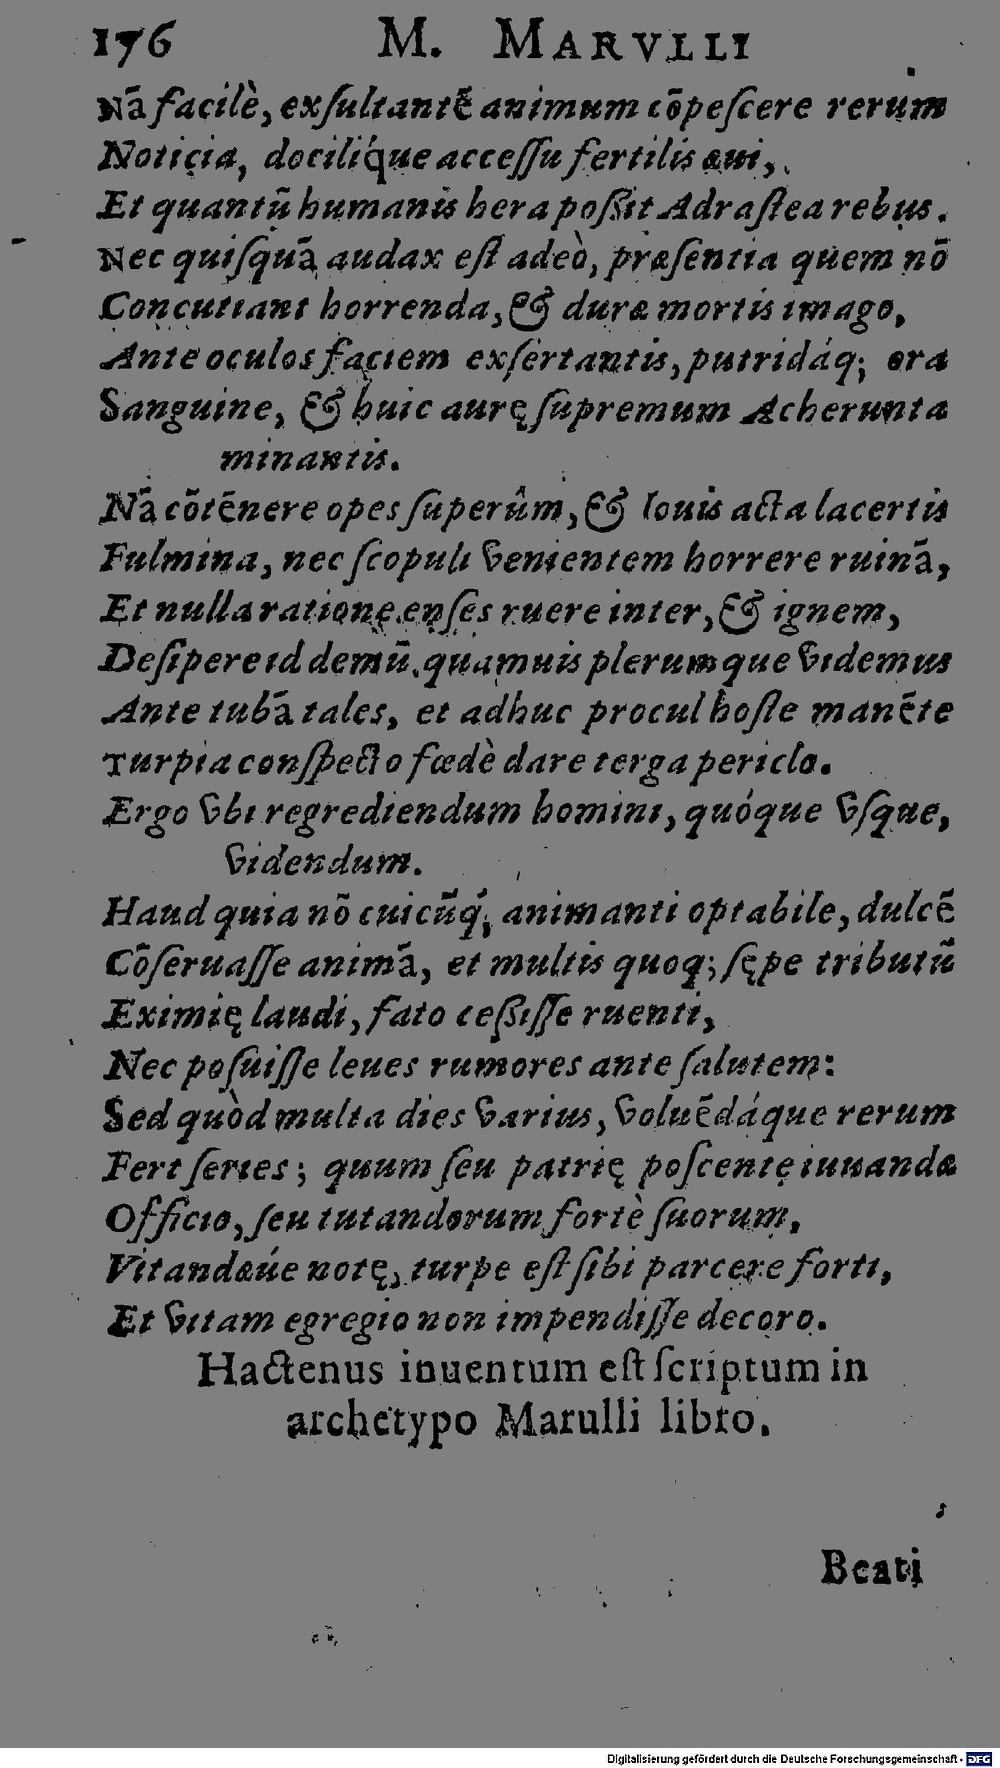 176 M. MARVLLI
Nā facilè, exſultantē animum cōpeſcere rerum
Noticia, dociliq́ue acceſſu fertilis æui,
Et quantū humanis hera poſsit Adraſtea rebus.
Nec quiſquā audax eſt adeò, præſentia quem nō
Concutiant horrenda, & duræ mortis imago,
Ante oculos faciem exſertantis, putridáq; ora
Sanguine, & huic aurę ſupremum Acherunta
minantis.
Nā cōtēnere opes ſuperûm, & Iouis acta lacertis
Fulmina, nec ſcopuli venientem horrere ruinā,
Et nulla ratione enſes ruere inter, & ignem,
Deſipere id demū. quamuis plerumque videmus
Ante tubā tales, et adhuc procul hoſte manēte
Turpia conſpecto fœdè dare terga periclo.
Ergo vbi regrediendum homini, quóque vſque,
videndum.
Haud quia nō cuicūq́; animanti optabile, dulcē
Cōſeruaſſe animā, et multis quoq; ſępe tributū
Eximię laudi, fato ceſsiſſe ruenti,
Nec poſuiſſe leues rumores ante ſalutem:
Sed quòd multa dies varius, voluēdáque rerum
Fert ſeries; quum ſeu patrię poſcente iuuandæ
Officio, ſeu tutandorum fortè ſuorum,
Vitandæúe notę, turpe eſt ſibi parcere forti,
Et vitam egregio non impendiſſe decoro.
Hactenus inuentum eſt ſcriptum in
archetypo Marulli libro.
Beati
Digitalisierung gefördert durch die Deutsche Forschungsgemeinschaft - DFG